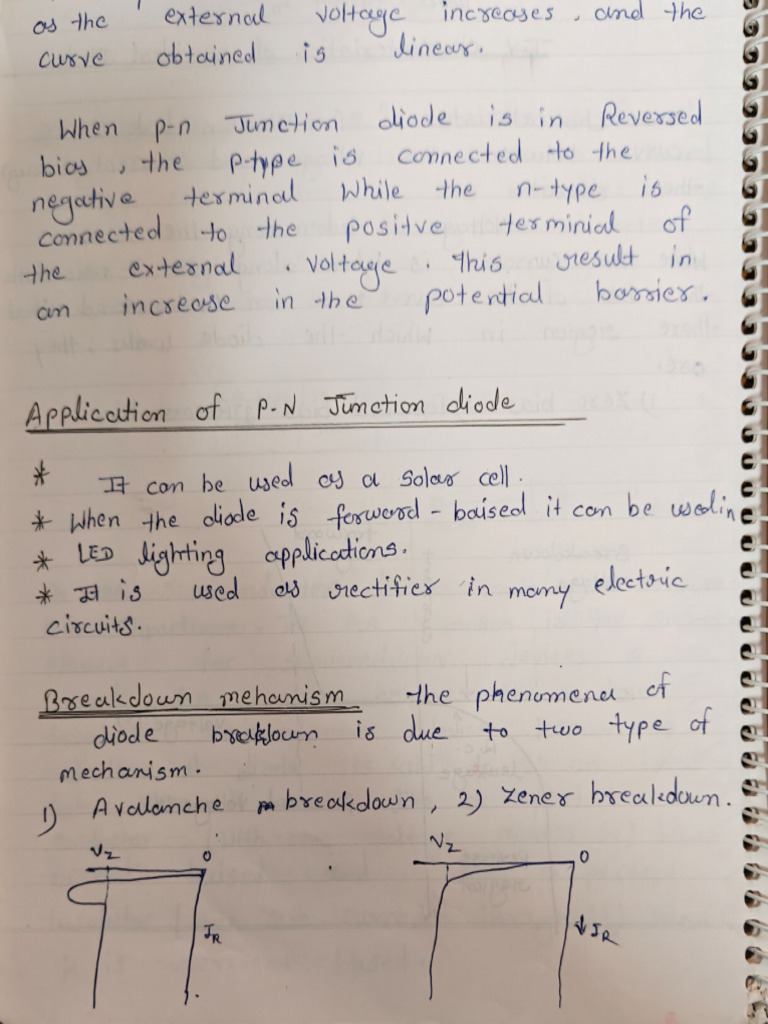 as the external voltage increases, and the
curve obtained is linear.
When p-n Junction diode is in Reversed
bias, the p-type is connected to the
negative terminal While the n-type is
connected to the positve terminial of
the external . voltage . this result in
an increase in the potential barrier.
Application of P-N Junction diode
* It can be used as a solar cell.
* When the diode is forward-baised it can be used in
* LED lighting applications.
* It is used as rectifier in many electric
circuits.
Breakdown mehanism the phenomena of
diode breakdown is due to two type of
mechanism.
1) Avalanche breakdown, 2) Zener breakdown.
VZ 0 VZ 0
IR ↓IR